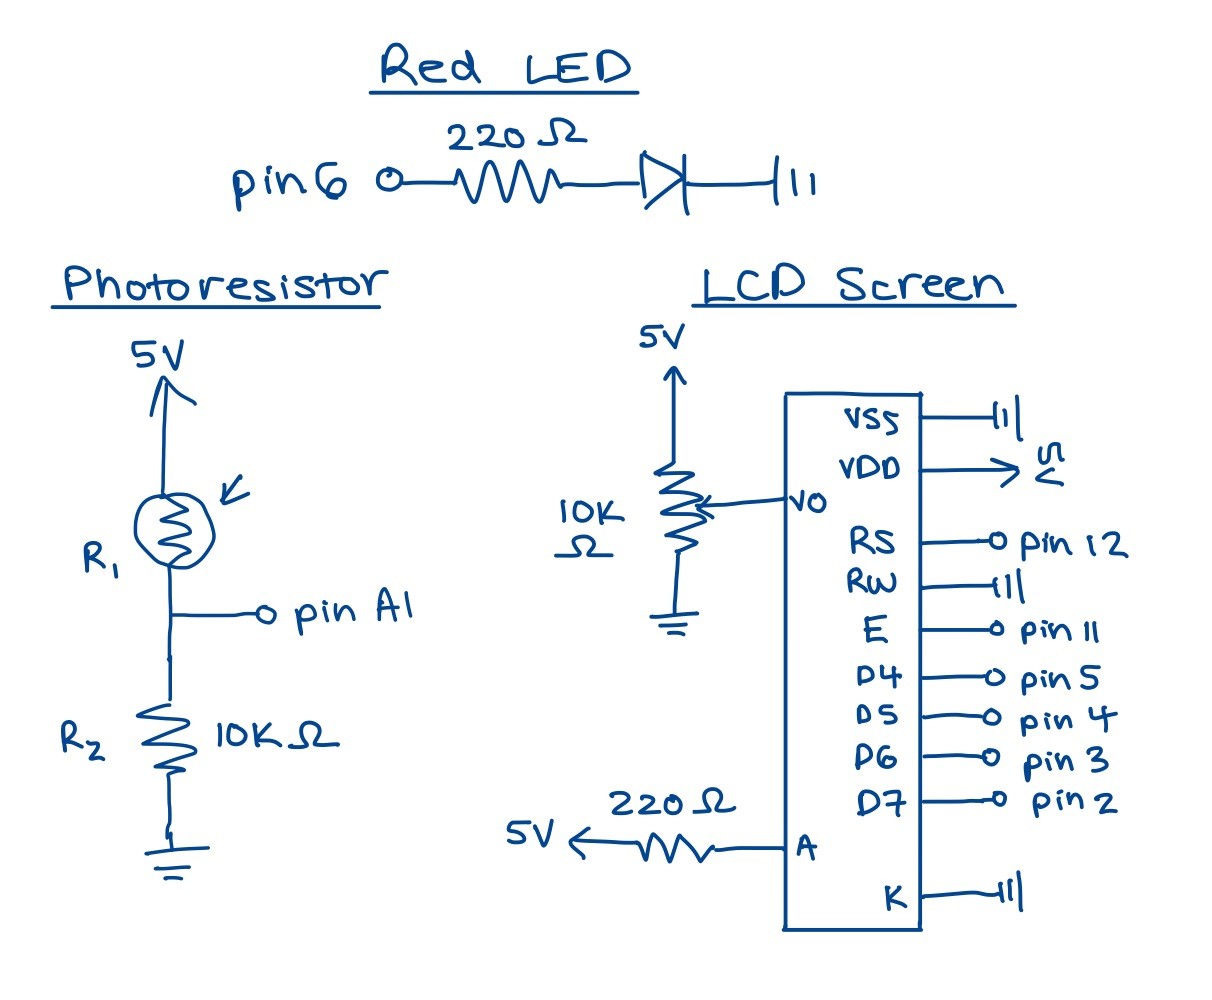 Red LED
220 Ω
pin 6
Photoresistor
5V
R₁
pin A1
R₂
10K Ω
LCD Screen
5V
10K
Ω
VO
VSS
VDD
5V
RS
pin 12
RW
E
pin 11
D4
pin 5
D5
pin 4
D6
pin 3
D7
pin 2
220 Ω
5V
A
K